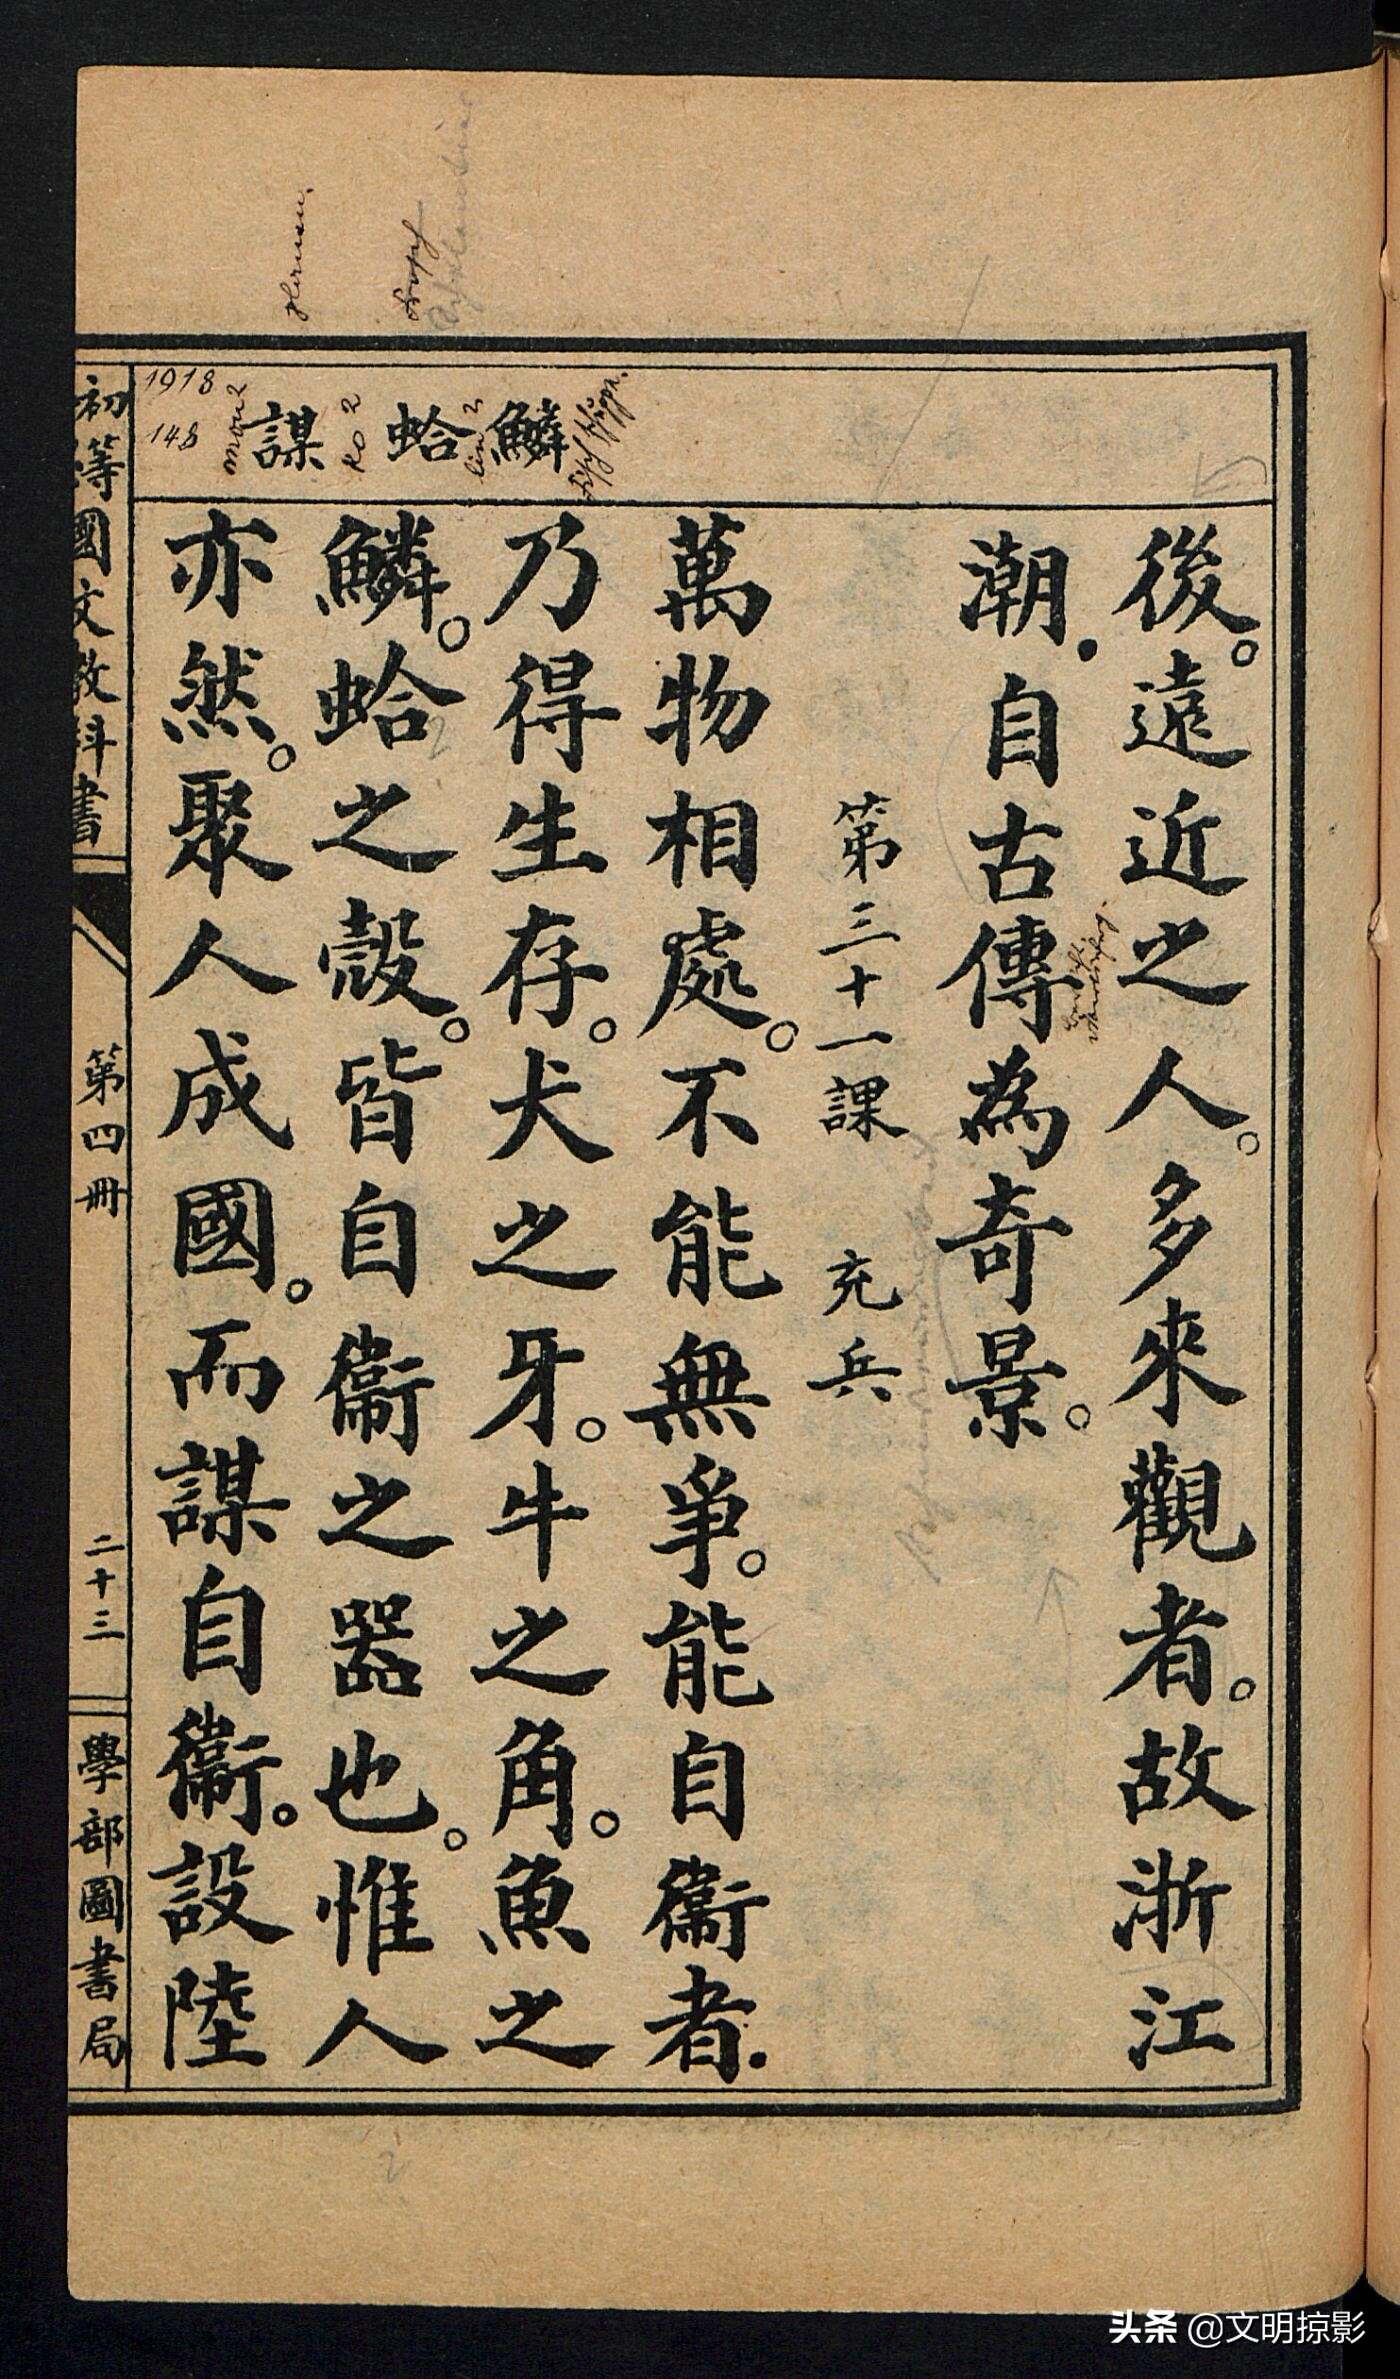 鱗 蛤 謀
lin 2
ko 2
mou 2
1918
148
後。遠近之人。多來觀者。故浙江
潮.自古傳為奇景。
第三十一課 充兵
萬物相處。不能無爭。能自衞者.
乃得生存。犬之牙。牛之角。魚之
鱗。蛤之殼。皆自衞之器也。惟人
亦然。聚人成國。而謀自衞。設陸
初等國文教科書 第四冊 二十三 學部圖書局
头条 @文明掠影